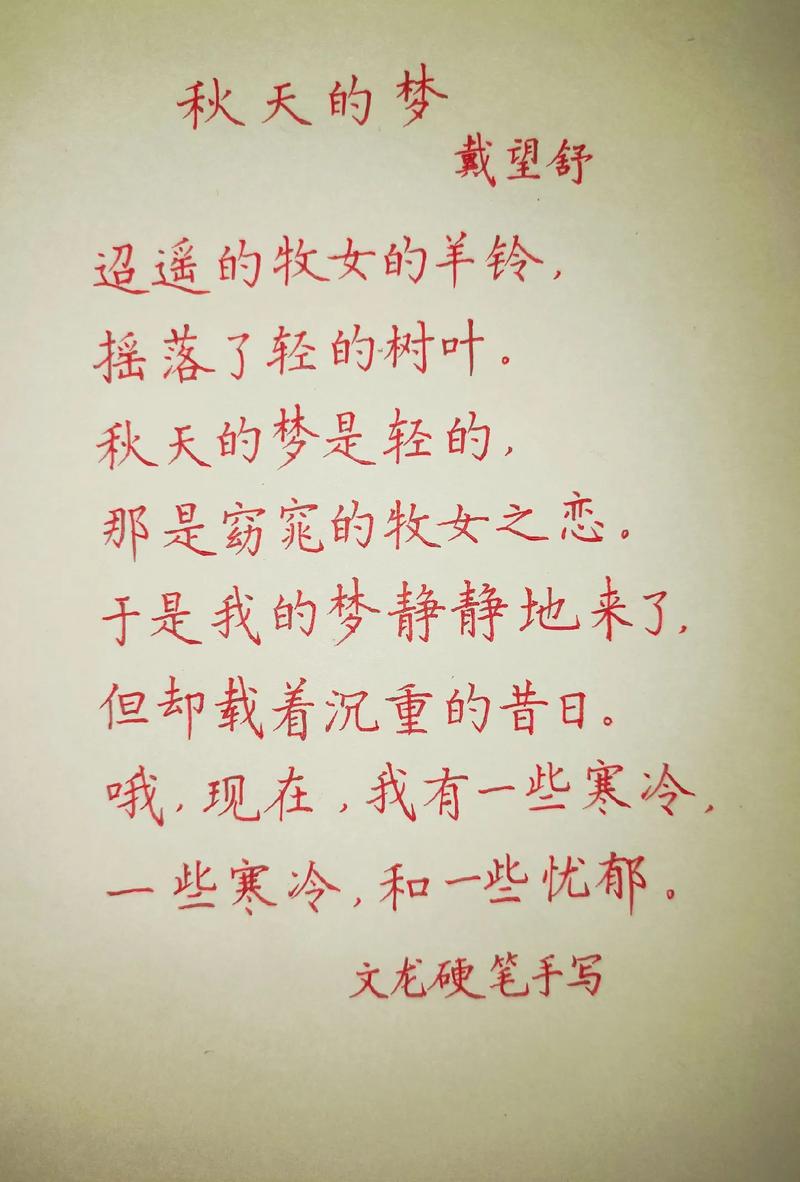 秋天的梦
戴望舒
迢遥的牧女的羊铃，
摇落了轻的树叶。
秋天的梦是轻的，
那是窈窕的牧女之恋。
于是我的梦静静地来了，
但却载着沉重的昔日。
哦，现在，我有一些寒冷，
一些寒冷，和一些忧郁。
文龙硬笔手写